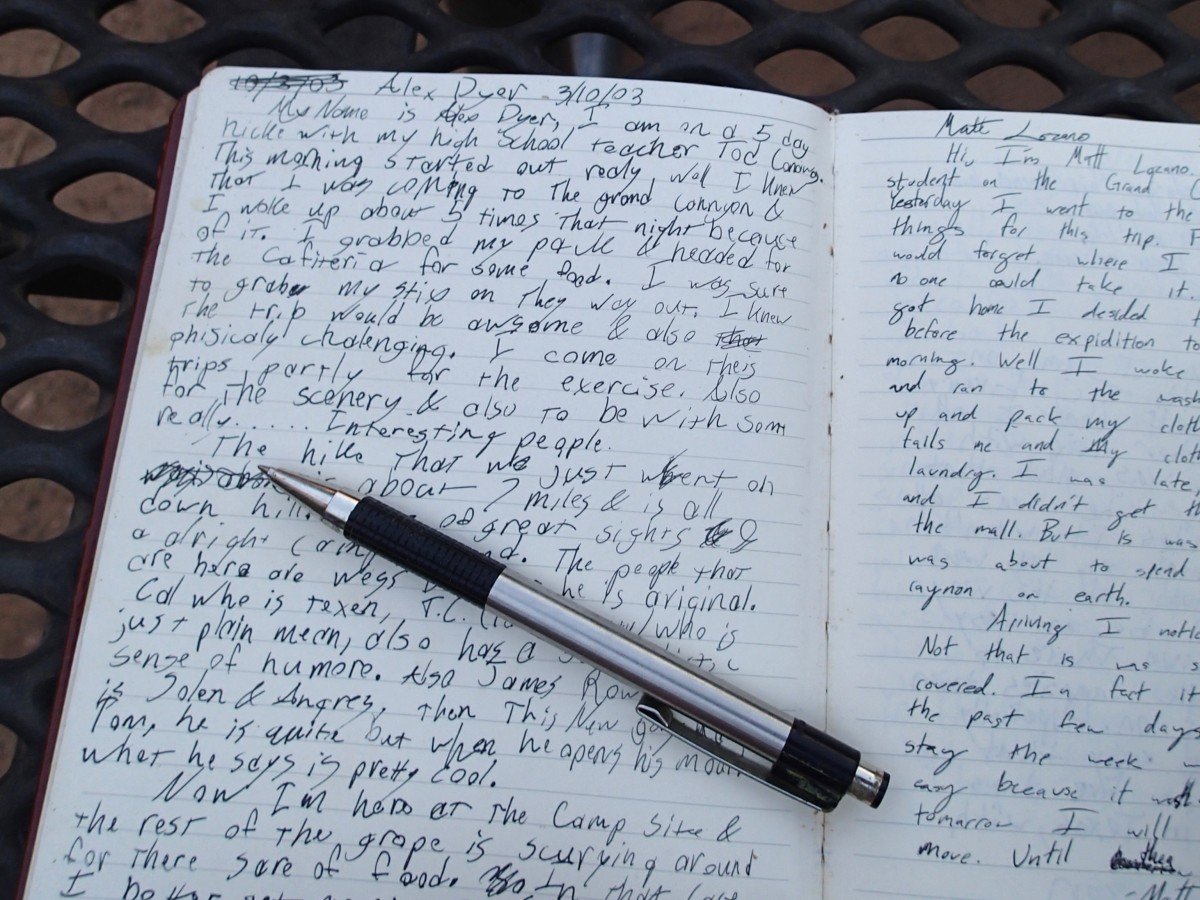 10/3/03 Alex Dyer 3/10/03
My Name is Alex Dyer, I am on a 5 day
hicke with my high School teacher Tod
This morning started out realy well I knew
that I was coming to The grand connyon &
I woke up about 5 times that night because
of it. I grabbed my pack & headed for
the Cafiteria for some food. I was sure
to grab my stix on they way out. I knew
the trip would be awsome & also that
phisicaly chalenging. I come on theis
trips partly for the exercise. Also
for the scenery & also to be with som
really...... Interesting people.
The hike that we just went on
is about 7 miles & is all
down hill. of great sights &
a alright The people that
are here are wess he is original.
Cal who is texen, T.C. who is
just plain mean, also has a
sense of humore. Also James Row
is Jolen & Angrey, then This New guy
Tom, he is quite but when he opens his mouth
what he says is pretty cool.
Now I'm here at the Camp Site &
the rest of the grope is scurying around
for there sare of food. In that case
I better get
Matt Lozano
Hi, I'm Matt Lozano,
student on the Grand
Yesterday I went to the
things for this trip.
would forget where I
no one could take it.
got home I desided
before the expidition to
morning. Well I woke
and ran to the wash
up and pack my cloth
falls me and my cloth
laundry. I was late,
and I didn't get
the mall. But is was
was about to spend
caynon on earth.
Ariving I noti
Not that is was s
covered. In fact it
the past few days
stay the week w
easy because it was
tomarrow I will
move. Until then
- Matt